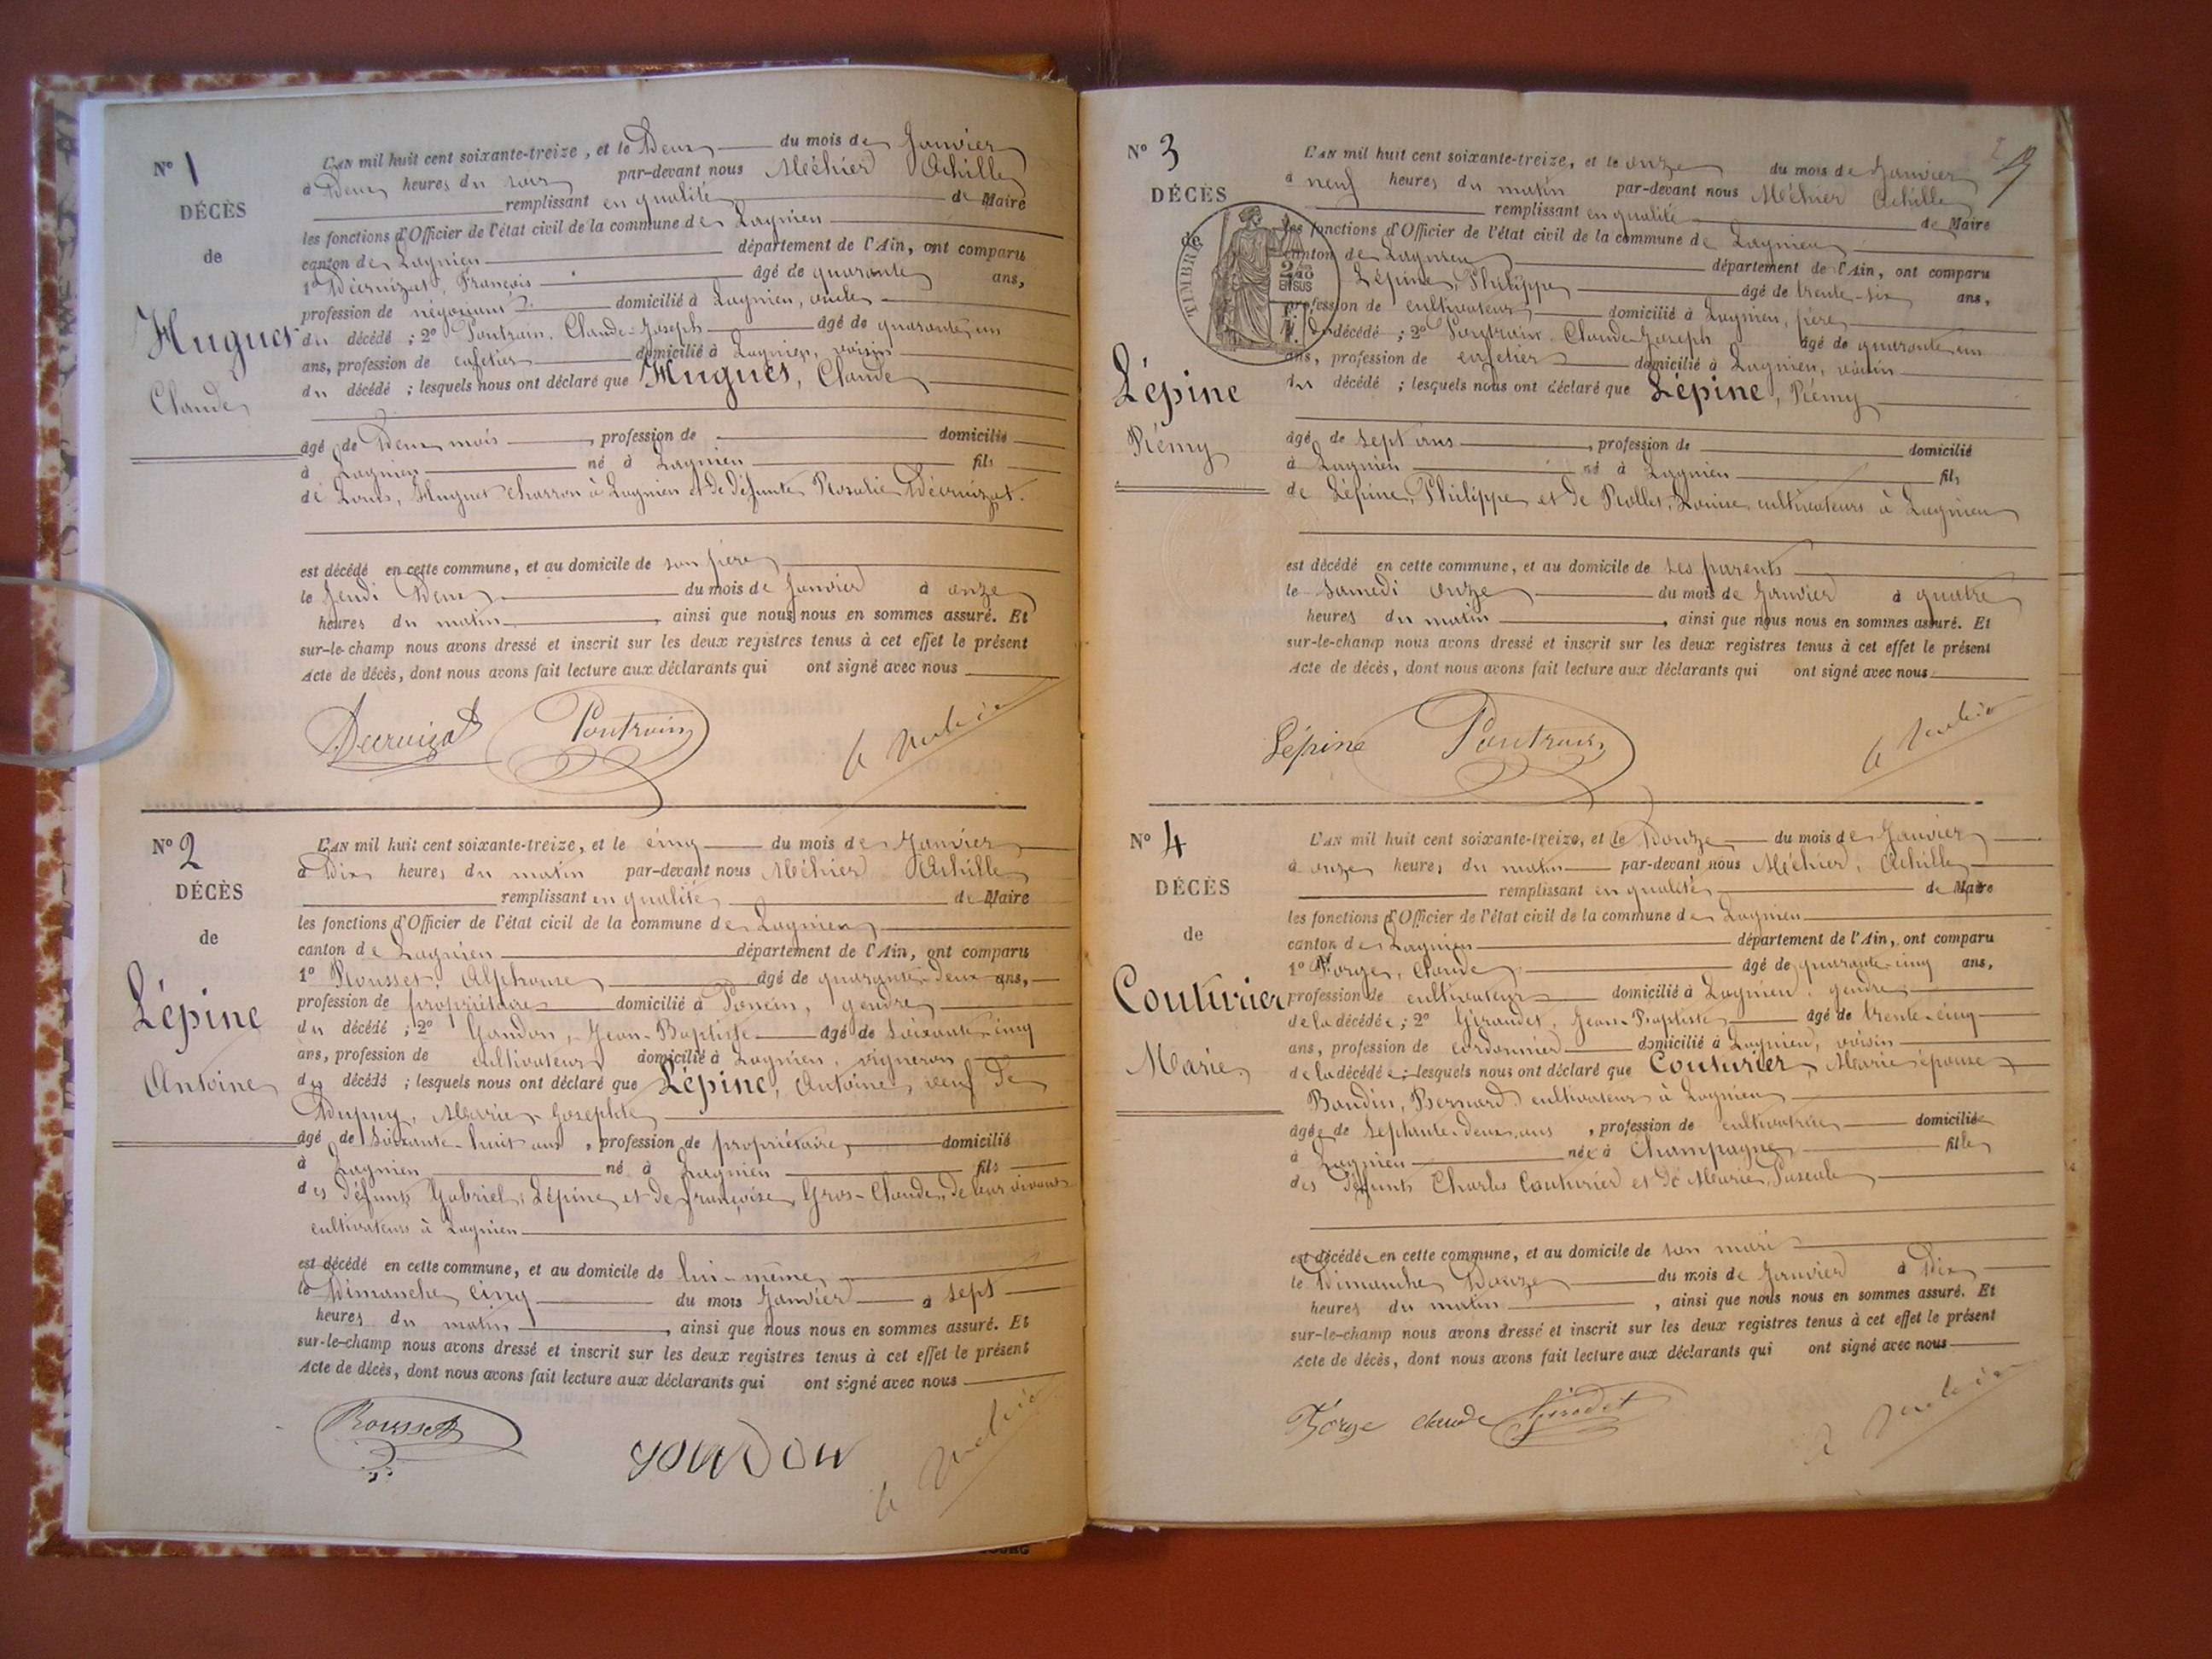 N° 1
DÉCÈS
de
Hugues
Claude
L'AN mil huit cent soixante-treize, et le Deux du mois de Janvier
à Deux heures du soir par-devant nous Méhier Achille
remplissant en qualité de Maire
les fonctions d'Officier de l'état civil de la commune de Lagnieu
canton de Lagnieu département de l'Ain, ont comparu
1° Décruizat, François âgé de quarante ans,
profession de négociant domicilié à Lagnieu, oncle
du décédé ; 2° Pontrain, Claude-Joseph âgé de quarante un
ans, profession de cafetier domicilié à Lagnieu, voisin
du décédé ; lesquels nous ont déclaré que Hugues, Claude
âgé de Deux mois, profession de domicilié
à Lagnieu né à Lagnieu fils
de Louis, Hugues charron à Lagnieu et de défunte Rosalie Décruizat.
est décédé en cette commune, et au domicile de son père
le Jeudi Deux du mois de Janvier à onze
heures du matin, ainsi que nous nous en sommes assuré. Et
sur-le-champ nous avons dressé et inscrit sur les deux registres tenus à cet effet le présent
Acte de décès, dont nous avons fait lecture aux déclarants qui ont signé avec nous
Decruizat Pontrain
N° 2
DÉCÈS
de
Lépine
Antoine
L'AN mil huit cent soixante-treize, et le cinq du mois de Janvier
à Dix heures du matin par-devant nous Méhier Achille
remplissant en qualité de Maire
les fonctions d'Officier de l'état civil de la commune de Lagnieu
canton de Lagnieu département de l'Ain, ont comparu
1° Rousset, Alphonse âgé de quarante-deux ans,
profession de propriétaire domicilié à Poncin, gendre
du décédé ; 2° Gondon, Jean-Baptiste âgé de soixante-cinq
ans, profession de cultivateur domicilié à Lagnieu, vigneron
du décédé ; lesquels nous ont déclaré que Lépine, Antoine, veuf de
Dupuy, Marie-Josephte
âgé de soixante-huit ans, profession de propriétaire domicilié
à Lagnieu né à Lagnieu fils
des défunts Gabriel Lépine et de françoise Gros-Claude, de leur vivant
cultivateurs à Lagnieu
est décédé en cette commune, et au domicile de lui-même
le Dimanche cinq du mois Janvier à sept
heures du matin, ainsi que nous nous en sommes assuré. Et
sur-le-champ nous avons dressé et inscrit sur les deux registres tenus à cet effet le présent
Acte de décès, dont nous avons fait lecture aux déclarants qui ont signé avec nous
Rousset gondon
N° 3
DÉCÈS
de
TIMBRE
2/10 EN SUS
Lépine
Rémy
L'AN mil huit cent soixante-treize, et le onze du mois de Janvier
à neuf heures du matin par-devant nous Méhier Achille
remplissant en qualité de Maire
les fonctions d'Officier de l'état civil de la commune de Lagnieu
canton de Lagnieu département de l'Ain, ont comparu
Lépine, Philippe âgé de trente-six ans,
profession de cultivateur domicilié à Lagnieu, père
du décédé ; 2° Pontrain Claude-Joseph âgé de quarante un
ans, profession de cafetier domicilié à Lagnieu, voisin
du décédé ; lesquels nous ont déclaré que Lépine, Rémy
âgé de sept ans, profession de domicilié
à Lagnieu né à Lagnieu fils
de Lépine, Philippe et de Rollet, Louise cultivateurs à Lagnieu
est décédé en cette commune, et au domicile de ses parents
le Samedi onze du mois de Janvier à quatre
heures du matin, ainsi que nous nous en sommes assuré. Et
sur-le-champ nous avons dressé et inscrit sur les deux registres tenus à cet effet le présent
Acte de décès, dont nous avons fait lecture aux déclarants qui ont signé avec nous
Lépine Pontrain
N° 4
DÉCÈS
de
Couturier
Marie
L'AN mil huit cent soixante-treize, et le Douze du mois de Janvier
à onze heures du matin par-devant nous Méhier, Achille
remplissant en qualité de Maire
les fonctions d'Officier de l'état civil de la commune de Lagnieu
canton de Lagnieu département de l'Ain, ont comparu
1° Forge, Claude âgé de quarante-cinq ans,
profession de cultivateur domicilié à Lagnieu, gendre
de la décédée ; 2° Giraudet, Jean-Baptiste âgé de trente-cinq
ans, profession de cordonnier domicilié à Lagnieu, voisin
de la décédée ; lesquels nous ont déclaré que Couturier, Marie épouse
Boudin, Bernard cultivateur à Lagnieu
âgée de septante-deux ans, profession de cultivatrice domiciliée
à Lagnieu née à Champagne fille
des défunts Charles Couturier et de Marie Pascale
est décédée en cette commune, et au domicile de son mari
le Dimanche Douze du mois de Janvier à Dix
heures du matin, ainsi que nous nous en sommes assuré. Et
sur-le-champ nous avons dressé et inscrit sur les deux registres tenus à cet effet le présent
Acte de décès, dont nous avons fait lecture aux déclarants qui ont signé avec nous
Forge claude